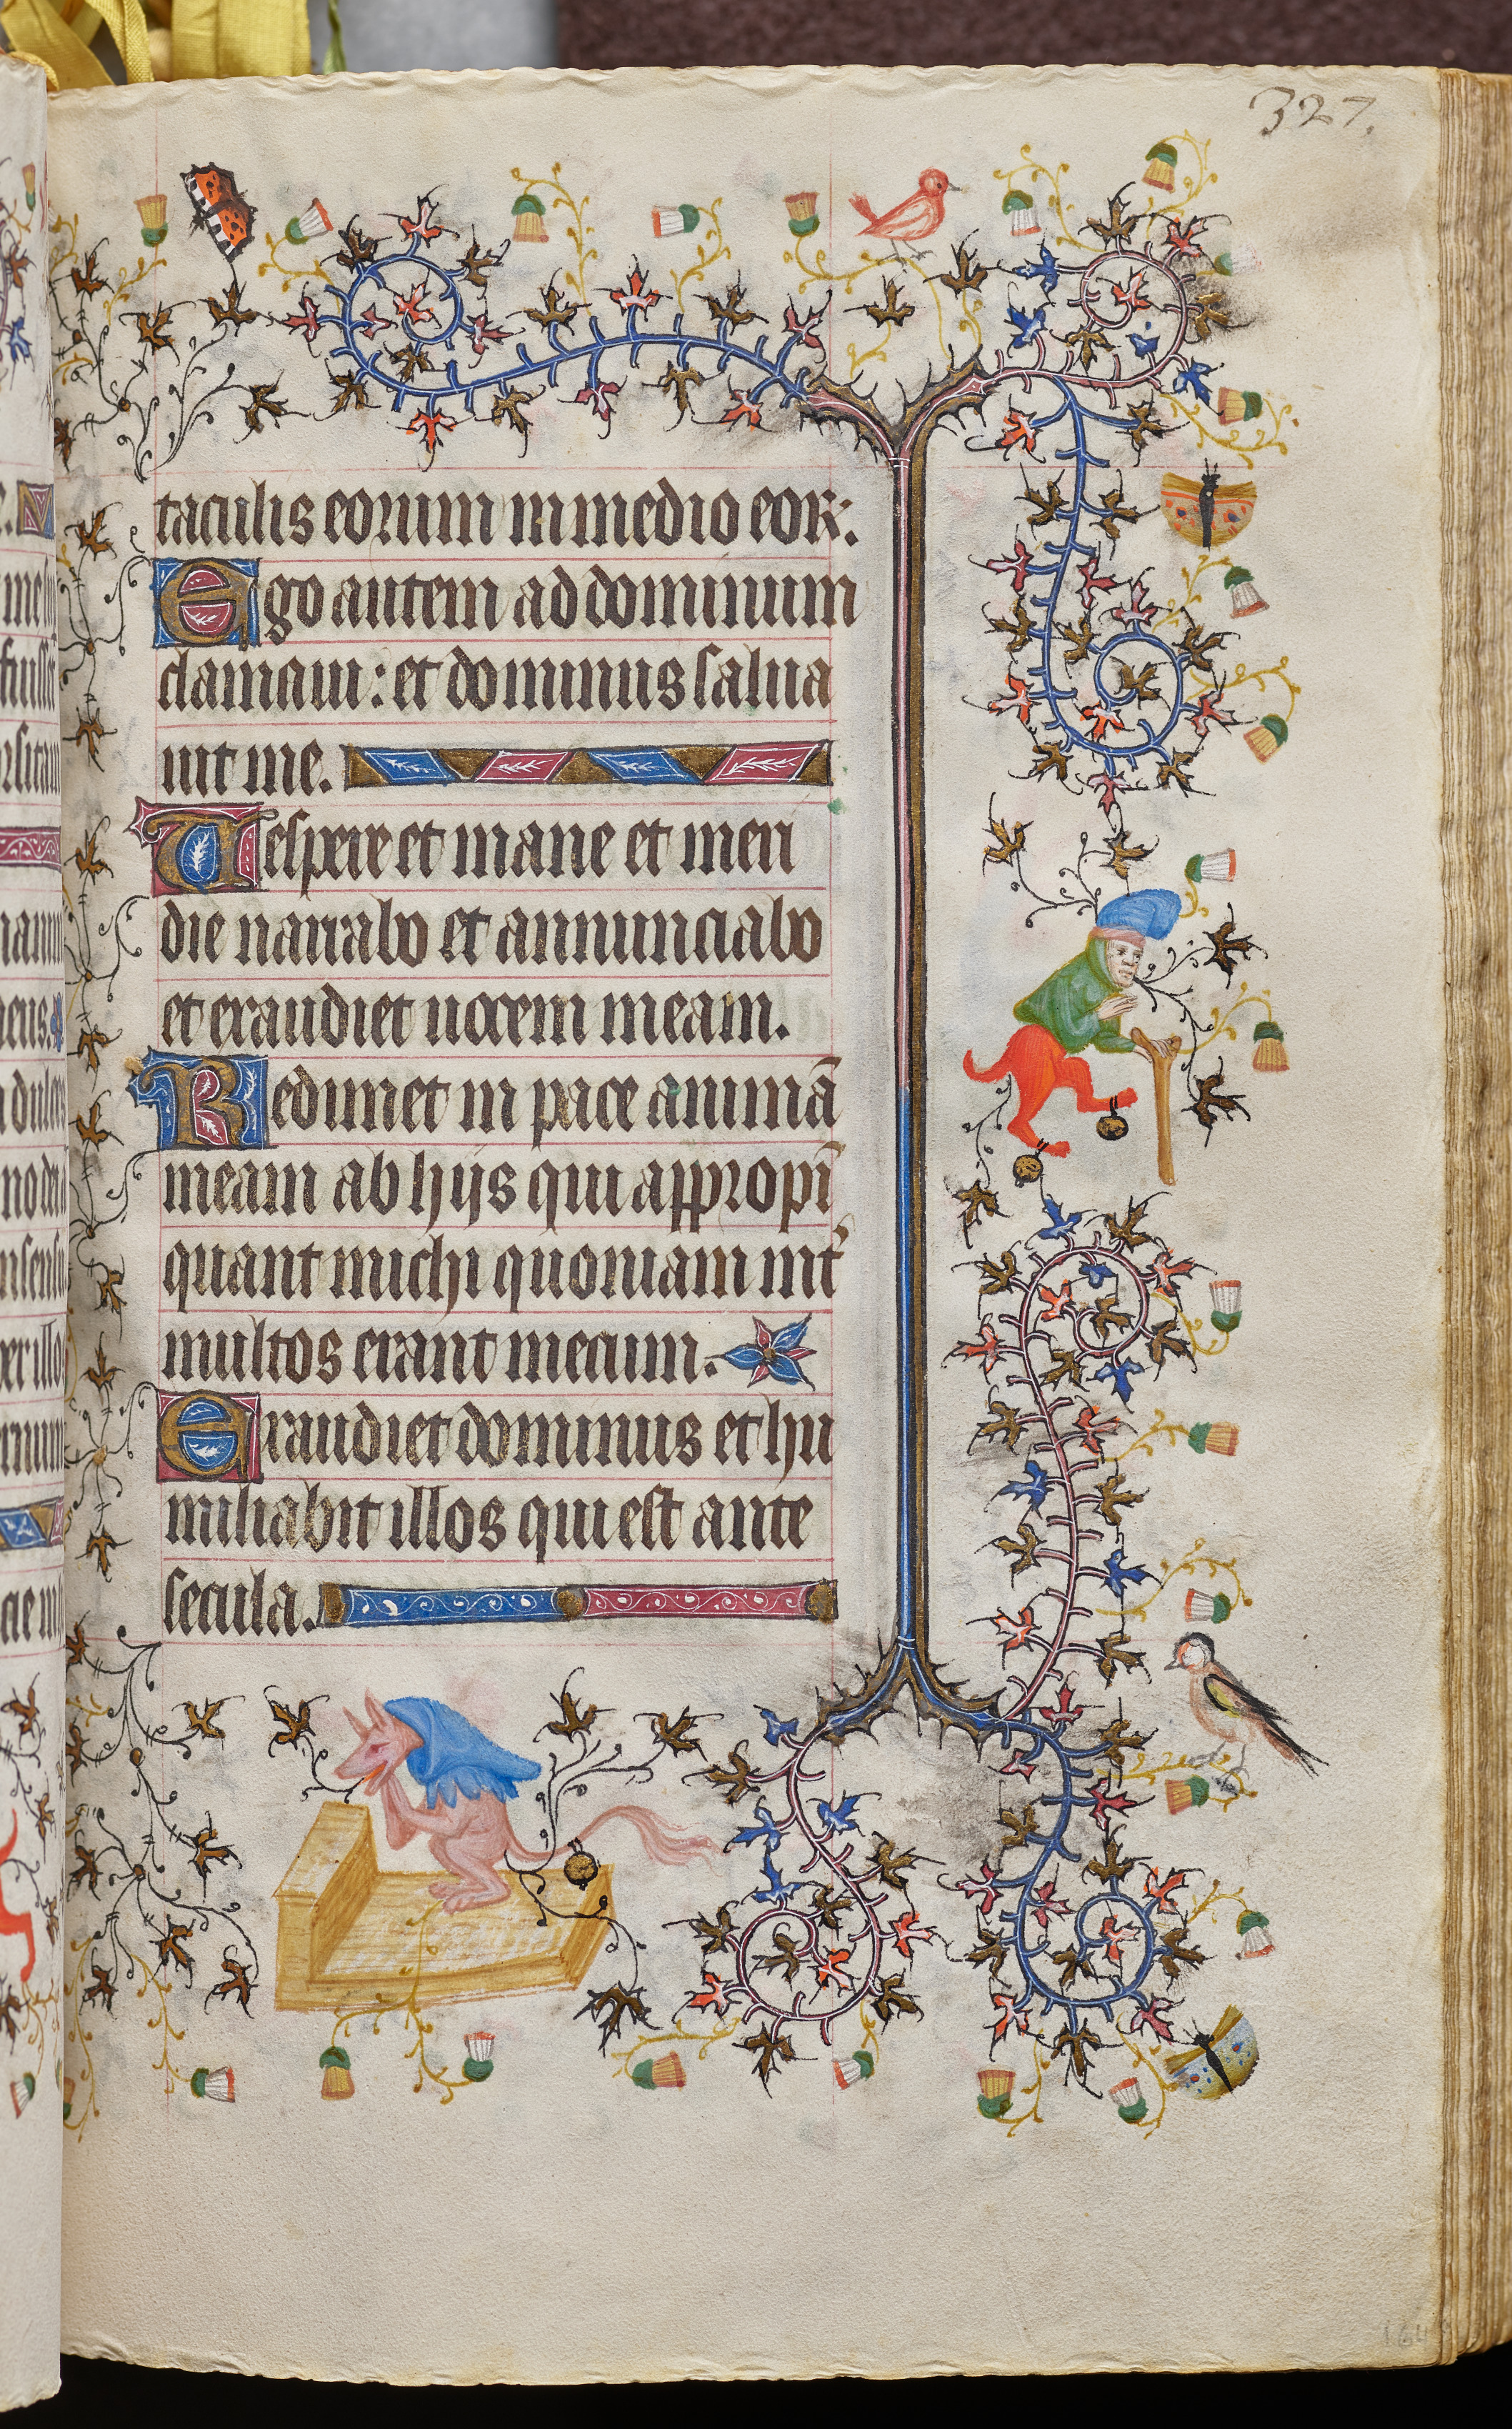 327.
taculis eorum in medio eor:
Ego autem ad dominum
clamaui: et dominus salua
uit me.
Uespere et mane et meri
die narrabo et annunciabo
et exaudiet uocem meam.
Redimet in pace animā
meam ab hijs qui appropī
quant michi quoniam int̉
multos erant mecum.
Exaudiet dominus et hu
miliabit illos qui est ante
secula.